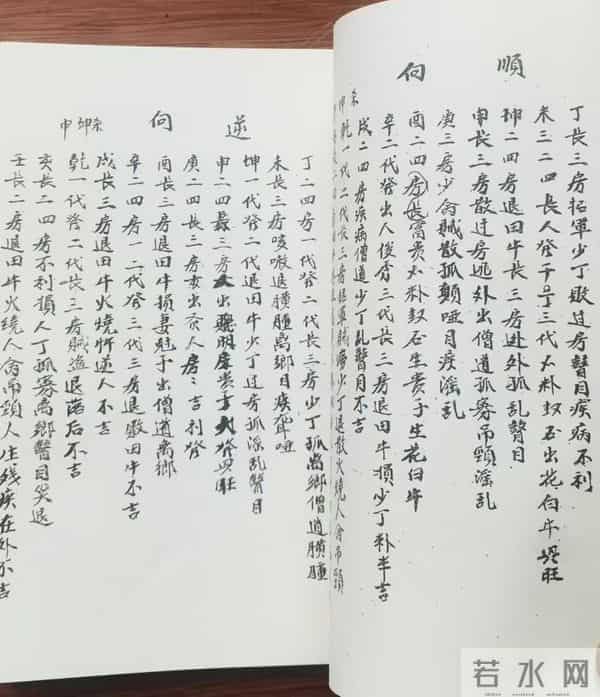 順 向
丁長三房招軍少丁敗过房瞽目疾病不利
未三二四長人登子三代大朴奴石出花白牛兴旺
坤二四房退田牛長三房逃外孤乱瞽目
申長三房敗过房逃外出僧道孤寡吊頸淫乱
庚三房少禽賊敗孤顛啞目疾淫乱
酉二四房長富贵大朴奴石生贵子生花白牛
辛二代登出人俊秀三代長三房退田牛損少丁朴半吉
戌二四房疾病僧道少丁乱瞽目不吉
乾一代二代長三房軍少丁退敗火燒人禽吊頸
逆 向
未坤申
丁二四房一代登二代長三房少丁孤离鄉僧道膿腫
未長三房咳嗽退膿腫离鄉目疾聾啞
坤一代登二代退田牛少丁过房孤淫乱瞽目
申二四長三房大出聰明康贵子大登兴旺
庚二四長三房出人房吉利登
酉長三房退田牛損妻尅子出僧道离鄉
辛二四房一二代登三代三房退敗田牛不吉
戌長三房退田牛火燒忤逆人不吉
乾一代登二代長三房賊盗退落后不吉
亥長二四房不利損人丁孤寡离鄉瞽目哭退
壬長二房退田牛火燒人禽吊頸人生残疾在外不吉
若水网